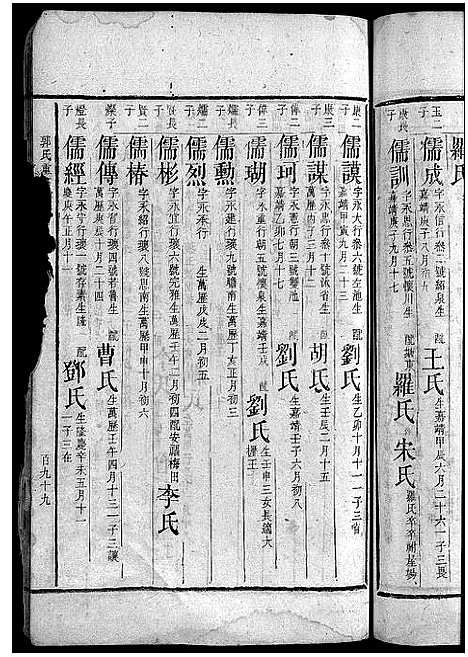 羅氏
玉二子 儒成 字永信行 號紹泉生嘉靖庚子八月 配王氏生嘉靖甲辰六月二十六一子三畏
康長子 儒訓 字永忠行泰五號懷川生嘉靖庚子九月十七 配 羅氏 朱氏 羅氏卒
康二子 儒謨 字永大行泰六號左池生嘉靖甲寅九月二十三 配劉氏生乙卯十月十一一子三省
康三子 儒謀 字永思行泰十號詠省生萬歷丙子三月十二 配胡氏生壬辰二月十五
偉二子 儒珂 字永憲行朝三號雙池生嘉靖乙卯七月十七 配劉氏生嘉靖壬子六月初八
偉三子 儒瑚 字永重行朝五號懷泉生嘉靖壬戌 配劉氏生壬申三女長適大
爌長子 儒勳 字永建行瓊九號瞻南生萬歷丁亥正月初三
爌二子 儒烈 字永承行 生萬歷戊戌二月初五
賢長子 儒彬 字永宜行瓊六號完雅生萬歷壬午二月初四配安福梅田李氏
賢二子 儒椿 字永紹行瓊八號思南生萬歷甲申十月初六
燦子 儒傳 字永信行瓊四號若魯生萬歷庚辰十月二十四 配曹氏生萬歷壬午四月十三一子三讓
燈長子 儒經 字永堂行瓊一號存素生隆慶庚午正月十一 配鄧氏生隆慶辛未五月十一一子三在
郭氏重
百九十九